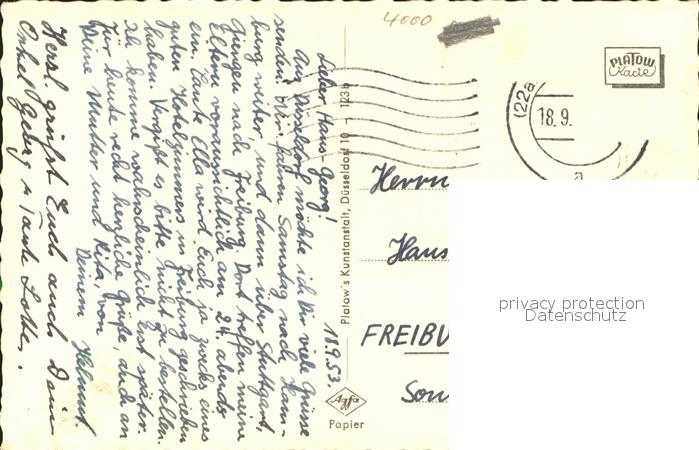 18.9.53.
Lieber Hans-Georg!
Aus Düsseldorf möchte ich Dir viele Grüsse
senden. Wir fahren Samstag nach Ham-
burg weiter, und dann über Stuttgart,
nach Freiburg. Dort treffen meine
Eltern voraussichtlich am 24. abends
ein. Tante Ella wird Euch ja zwecks eines
guten Hotelzimmers in Freiburg geschrieben
haben. Vergißt es bitte nicht zu bestellen.
Ich komme wahrscheinlich erst später.
Für heute recht herzliche Grüße, auch an
Deine Mutter und Rita, von
Deinem Helmut.
Herzl. grüßt Euch auch Dein
Onkel Georg u. Tante Lotte.
Platow's Kunstanstalt, Düsseldorf 10 - 123b
Agfa
Papier
4000
PLATOW
Karte
(22a
18.9.
a
Herrn
Hans
FREIBU
Son
privacy protection
Datenschutz